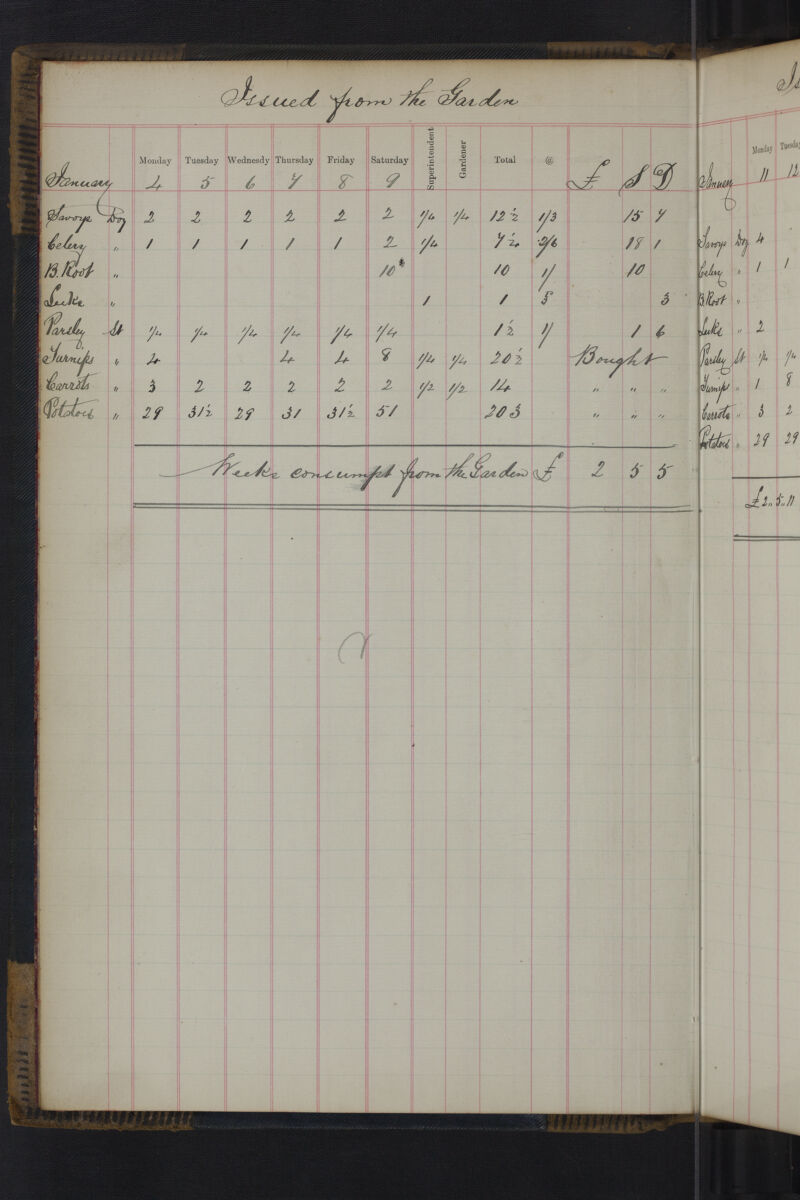 Issued from the Garden
Monday Tuesday Wednesdy Thursday Friday Saturday Superintendent Gardener Total @
January 4 5 6 7 8 9 £ S D
Savoys Doz 2 2 2 2 2 2 1/4 1/4 12 1/2 1/3 15 7
Celery " 1 1 1 1 1 2 1/4 7 1/4 2/6 18 1
B. Root " 10 10 1/ 10
Leeks " 1 1 3 3
Parsley St 1/4 1/4 1/4 1/4 1/4 1/4 1 1/2 1/ 1 6
Turnips " 4 4 4 8 1/4 1/4 20 1/2 Bought
Carrots " 3 2 2 2 2 2 1/2 1/2 14 " " "
Potatoes " 29 31 1/2 29 31 31 1/2 51 203 " " "
Weeks consumpt from the Garden £ 2 5 5
Is
Monday Tuesday
January 11 12
Savoys Doz 4
Celery " 1 1
B. Root "
Leeks " 2
Parsley St 1/4 1/4
Turnips " 1 8
Carrots " 3 2
Potatoes " 29 29
£2.. 5.. 11